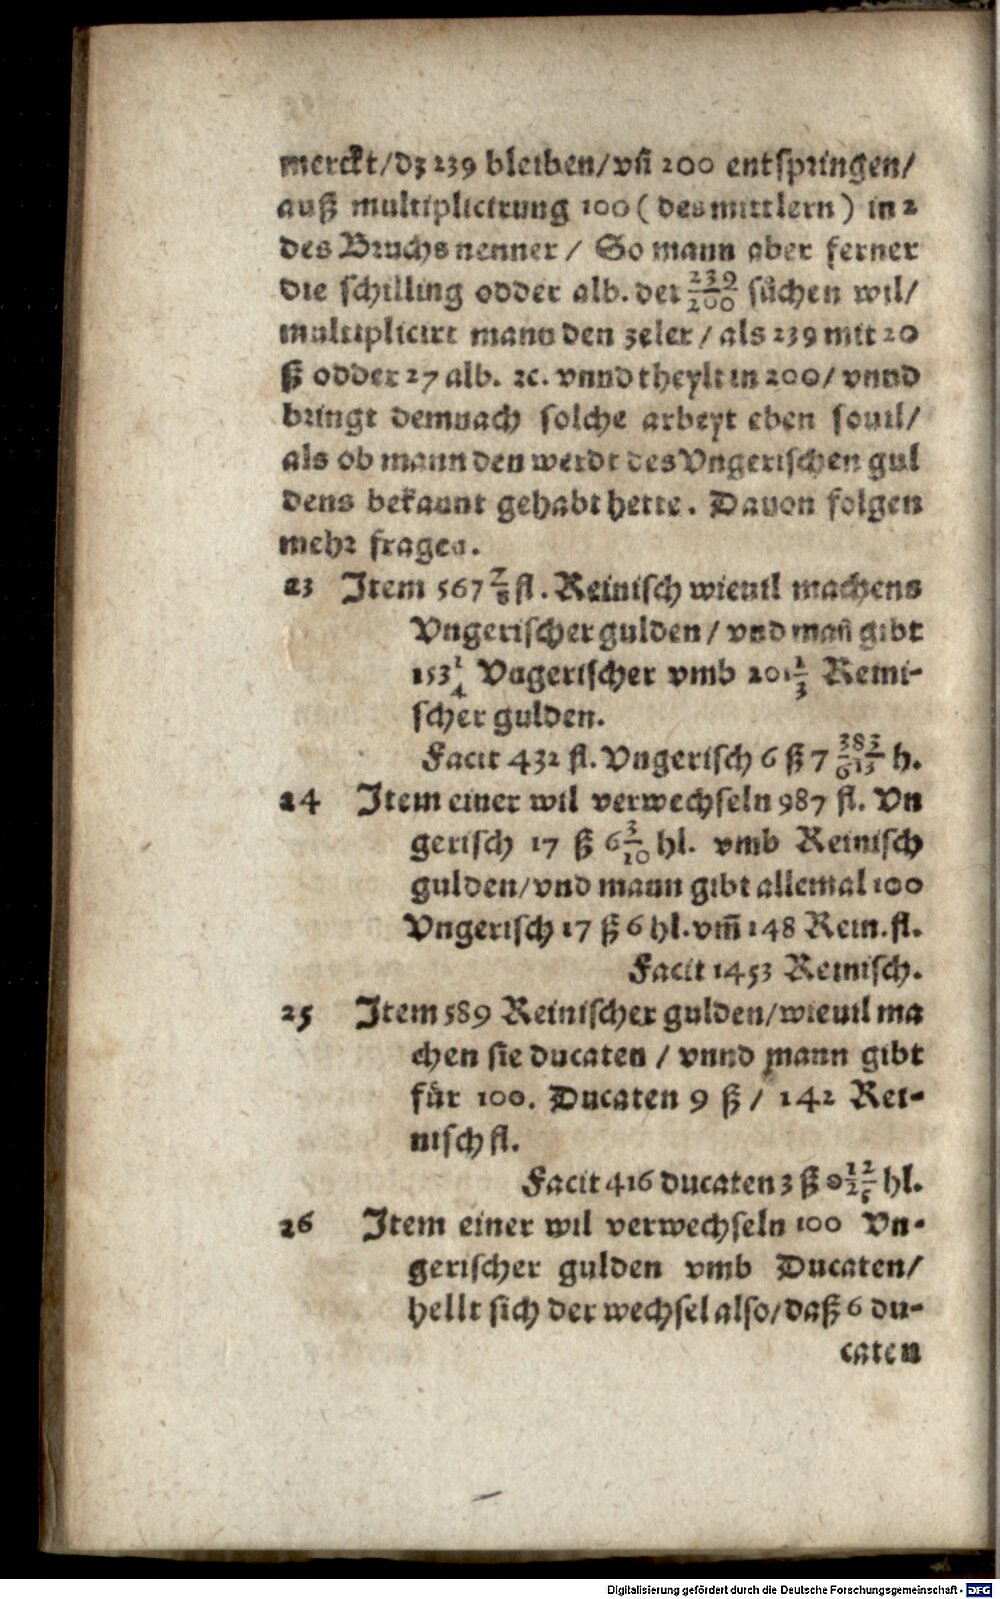 merckt/dz 239 bleiben/vñ 200 entspringen/
auß multiplicirung 100 (des mittlern) in 2
des Bruchs nenner / So mann aber ferner
die schilling odder alb. der 239/200 sůchen wil/
multiplicirt mann den zeler / als 239 mit 20
ß odder 27 alb. ꝛc. vnnd theylt in 200/ vnnd
bringt demnach solche arbeyt eben souil/
als ob mann den werdt des Vngerischen gul
dens bekannt gehabt hette. Dauon folgen
mehr fragen.
23 Item 567 7/8 fl. Reinisch wieuil machens
Vngerischer gulden / vnd mañ gibt
153 1/4 Vngerischer vmb 201 1/3 Reini-
scher gulden.
Facit 432 fl. Vngerisch 6 ß 7 383/613 h.
24 Item einer wil verwechseln 987 fl. Vn
gerisch 17 ß 6 3/10 hl. vmb Reinisch
gulden/vnd mann gibt allemal 100
Vngerisch 17 ß 6 hl. vm̃ 148 Rein. fl.
Facit 1453 Reinisch.
25 Item 589 Reinischer gulden/wieuil ma
chen sie ducaten / vnnd mann gibt
für 100. Ducaten 9 ß / 142 Rei-
nisch fl.
Facit 416 ducaten 3 ß hl.
26 Item einer wil verwechseln 100 Vn-
gerischer gulden vmb Ducaten/
hellt sich der wechsel also/daß 6 du-
caten
Digitalisierung gefördert durch die Deutsche Forschungsgemeinschaft - DFG